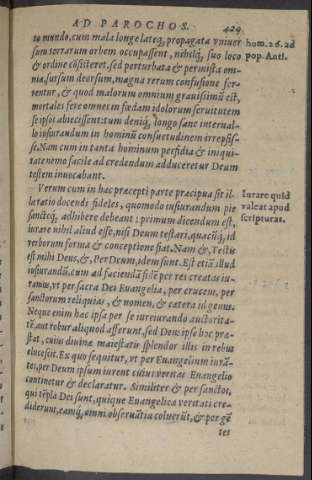 AD PAROCHOS. 429
to mundo, cum mala longe lateq́; propagata vniuer
sum terrarum orbem occupassent, nihilq́; suo loco
& ordine cōsisteret, sed perturbata & permista om-
nia, sursum deorsum, magna rerum confusione fer-
rentur, & quod malorum omnium grauissimū est,
mortales fere omnes in fœdam idolorum seruitutem
se ipsos abiecissent: tum deniq́; longo sane interual-
lo iusiurandum in hominū consuetudinem irrepsis-
se. Nam cum in tanta hominum perfidia & iniqui-
tate nemo facile ad credendum adduceretur Deum
testem inuocabant.
Verum cum in hac præcepti parte præcipua sit il-
la ratio docendi fideles, quomodo iusiurandum pie
sanctéq; adhibere debeant: primum dicendum est,
iurare nihil aliud esse, nisi Deum testari, quacūq; id
verborum forma & conceptione fiat. Nam &, Testis
est mihi Deus, &, Per Deum, idem sunt. Est etiā illud
iusiurandū, cum ad faciendā fidē per res creatas iu-
ramus, vt per sacra Dei Euangelia, per crucem, per
sanctorum reliquias, & nomen, & cætera id genus.
Neque enim hæc ipsa per se iureiurando auctorita-
tē aut robur aliquod afferunt, sed Deus ipse hoc præ-
stat, cuius diuinæ maiestatis splendor illis in rebus
elucescit. Ex quo sequitur, vt per Euangelium iurā-
tes, per Deum ipsum iurent cuius veritas Euangelio
continetur & declaratur. Similiter & per sanctos,
qui tēpla Dei sunt, quique Euangelicæ veritati cre-
diderunt, eamq́; omni obseruātia coluerūt, & per gē
tes
hom. 26. ad
pop. Anti.
Iurare quid
valeat apud
scripturas.